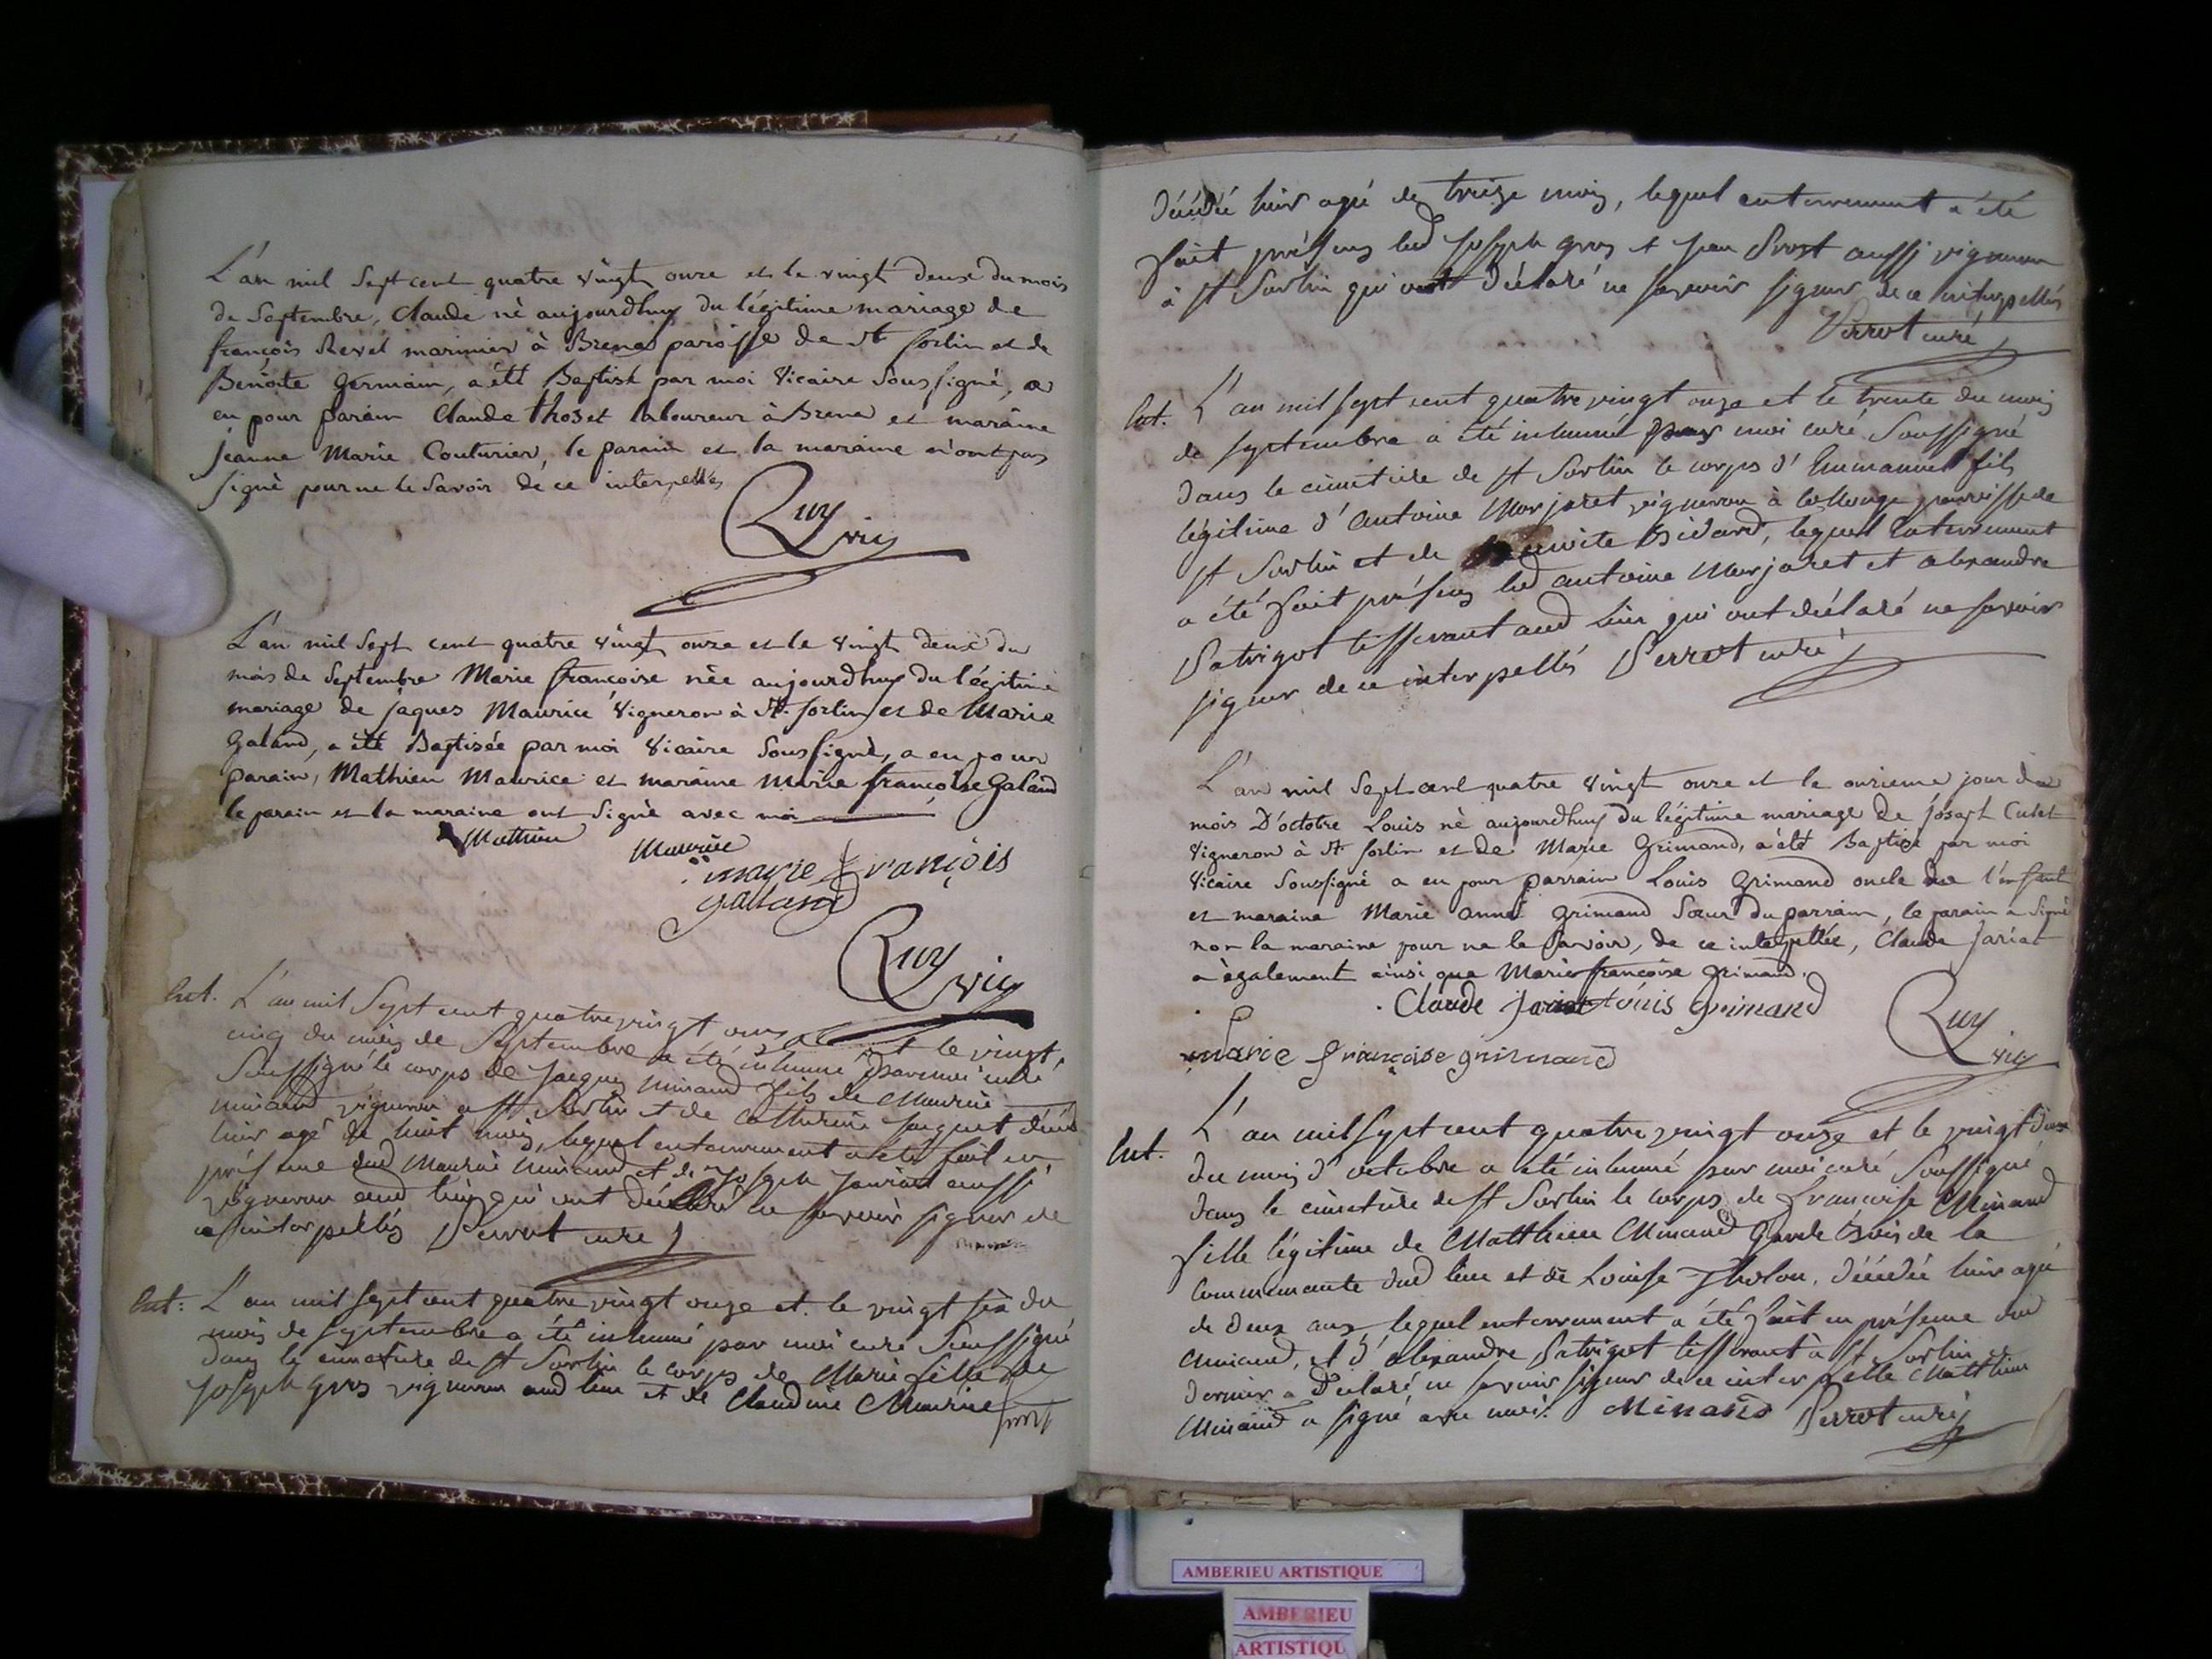 L'an mil Sept cent quatre vingt onze et le vingt deux du mois
de Septembre, Claude né aujourdhuy du légitime mariage de
françois Revel marinier à Brene paroisse de St Sorlin et de
Benoite Germain, a été Baptisé par moi Vicaire Soussigné, a
eu pour parain Claude thoset laboureur à Brene et maraine
Jeanne Marie Couturier, le parain et la maraine n'ont pas
signé pour ne le Savoir de ce interpellés
Ruy
vic
L'an mil Sept cent quatre vingt onze et le vingt deux du
mois de Septembre Marie françoise née aujourdhuy du légitime
mariage de jaques Maurice Vigneron à St Sorlin et de Marie
Galand, a été Baptisée par moi Vicaire Soussigné, a eu pour
parain, Mathieu Maurice et maraine Marie françoise Galand
le parain et la maraine ont Signé avec moi
Mathieu Maurice
marie françois
galland
Ruy
vic
Ent. L'an mil Sept cent quatre vingt onze et le vingt
cinq du mois de Septembre a été inhumé par moi curé
Soussigné le corps de Jacques Minand fils de Maurice
Minand vigneron a St Sorlin et de Catherine Jacquet décédé
hier agé de huit mois, lequel enterrement a été fait en
présence dud Maurice Minand et de Joseph aussi
vigneron aud lieu qui ont déclaré ne savoir signer de
ce interpellés Perrot curé
Ent: L'an mil sept cent quatre vingt onze et le vingt six du
mois de septembre a été inhumé par moi curé Soussigné
dans le cimetière de St Sorlin le corps de Marie fille de
Joseph gros vigneron aud lieu et de Claudine Maurice
décédé hier agé de treize mois, lequel enterrement a été
fait présens led Joseph gros et Jean Prost aussi vigneron
à St Sorlin qui ont déclaré ne savoir signer de ce interpellés
Perrot curé
Ent. L'an mil sept cent quatre vingt onze et le trente du mois
de septembre a été inhumé par moi curé Soussigné
dans le cimetière de St Sorlin le corps d'Emmanuel fils
légitime d'antoine Marjaret vigneron à Collonge parroisse de
St Sorlin et de Benoite Bidard, lequel Enterrement
a été fait présens led antoine Marjaret et alexandre
Patrigot tisserant aud lieu qui ont déclaré ne savoir
signer de ce interpellés Perrot curé
L'an mil Sept cent quatre vingt onze et le onzieme jour du
mois D'octobre Louis né aujourdhuy du légitime mariage de Joseph Cutet
Vigneron à St Sorlin et de Marie Grimand, a été Baptisé par moi
Vicaire Soussigné a eu pour parrain Louis Grimand oncle de l'enfant
et maraine Marie anne Grimand Sœur du parrain, le parain a Signé
non la maraine pour ne le Savoir, de ce interpellée, Claude Jariat
a également ainsi que Marie françoise Grimand.
Claude Jariat Louis Grimand
Marie françoise grimand
Ruy
vic
Ent. L'an mil sept cent quatre vingt onze et le vingt deux
du mois d'octobre a été inhumé par moi curé Soussigné
dans le cimetière de St Sorlin le corps de francoise Minand
fille légitime de Matthieu Minand Garde Bois de la
Communauté dud lieu et de Louise Tholon, décédée hier agé
de deux ans lequel enterrement a été fait en présence dud
Minand, et d'alexandre Patrigot tisserant à St Sorlin ce
dernier a déclaré ne savoir signer de ce interpellé Matthieu
Minand a signé avec moi. Minand Perrot curé
AMBERIEU ARTISTIQUE
AMBERIEU
ARTISTIQU